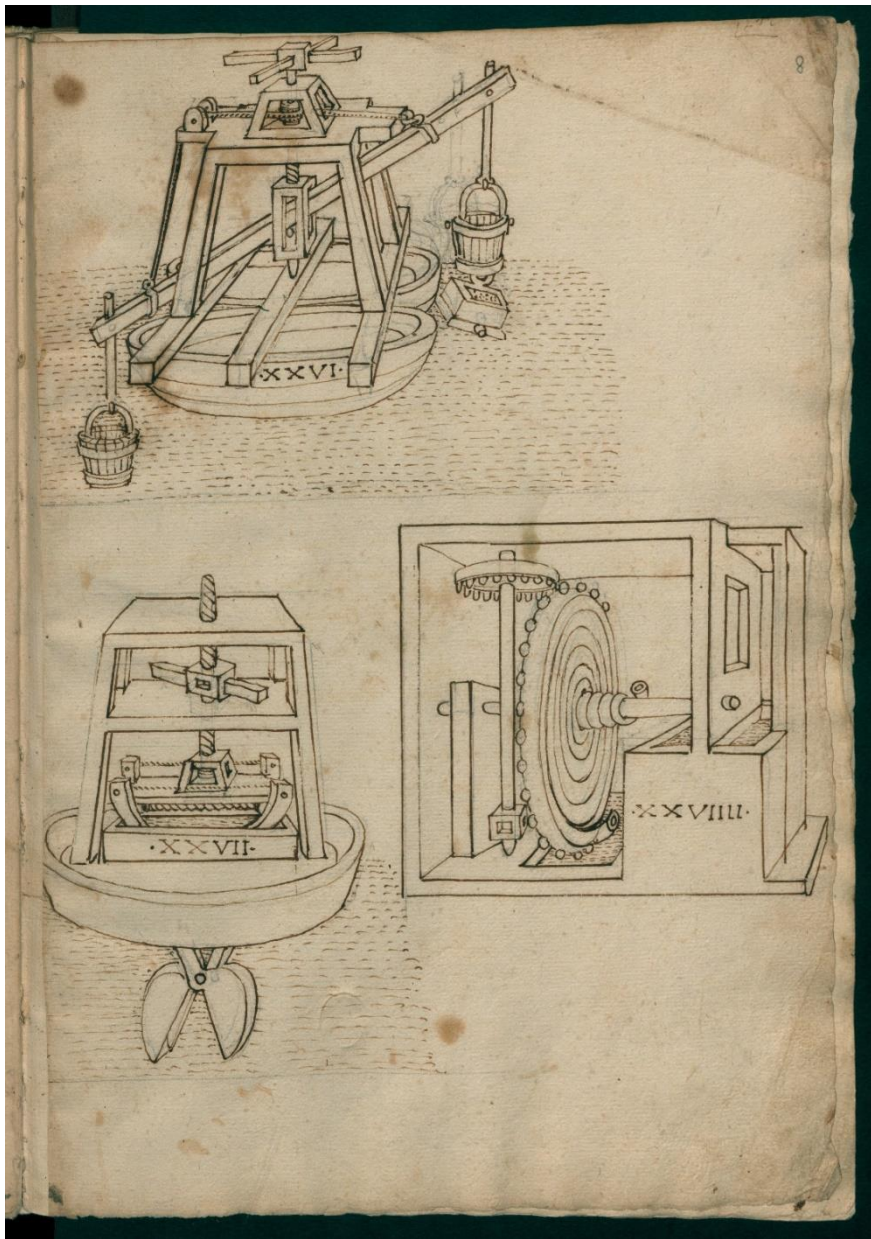 8
·XXVI·
·XXVII·
·XXVIIII·